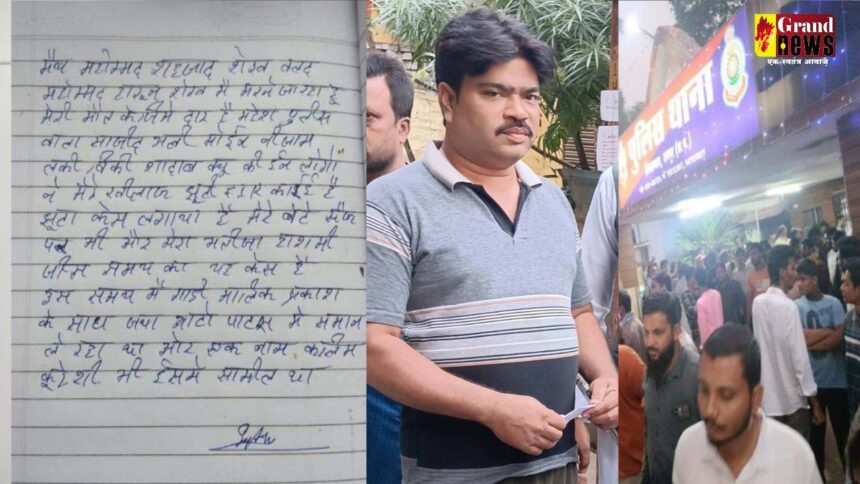 मैय महोम्मद शहजाद शेख वलद
महोम्मद हारून शेख मै मरने जा रहा हू
मेरी मौत के जिमे दार है महेश पुलीस
वाला साजीद अली मोईन नीजाम
लकी विकी शादाब क्यू की ईन लोगो
ने मेरे खीलाफ झूटी FIR कराई है
झूटा केस लगाया है मेरे बेटे सैफ
पर भी और मेरा भतीजा हाशमी
जीस समय का यह केस है
उस समय मै गाडी मालिक प्रकाश
के साथ जया ओटो पाटस मे समान
ले रहा था ओर एक नाम कालिम
कूरेशी भी ईसमे सामील था
Grand
news
एक स्वतंत्र आवाज़
पुलिस थाना